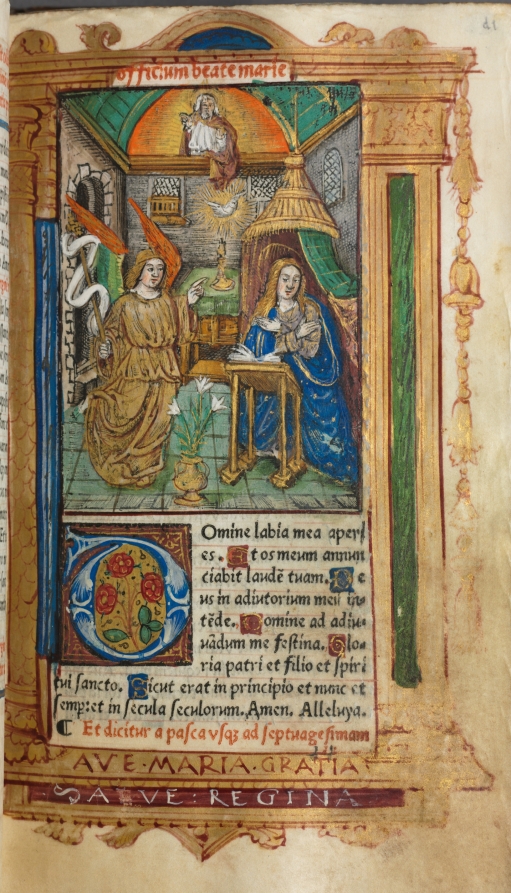 d1
officium beate marie
Domine labia mea aperi
es. Et os meum annun
ciabit laudē tuam. De
us in adiutorium meū in
tēde. Domine ad adiu
uādum me festina. Glo
ria patri et filio et spiri
tui sancto. Sicut erat in principio et nunc et
semp: et in secula seculorum. Amen. Alleluya.
Et dicitur a pasca vsqȝ ad septuagesimam
AVE·MARIA·GRATIA
SALVE: REGINA